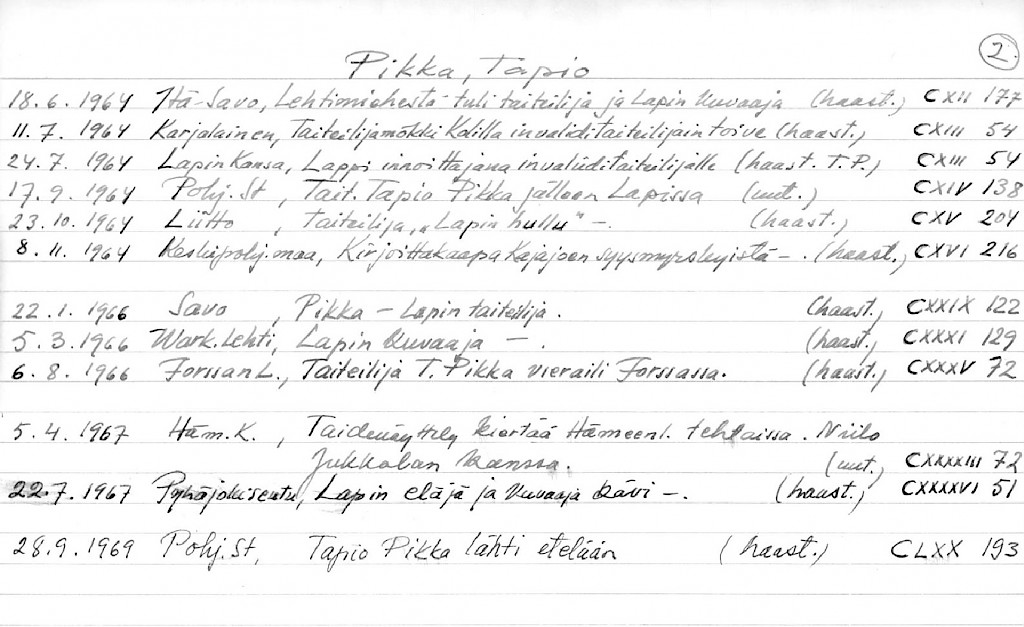 2.
Pikka, Tapio
18.6.1964 Itä-Savo, Lehtimiehestä tuli taiteilija ja Lapin kuvaaja (haast.) CXII 177
11.7.1964 Karjalainen, Taiteilijamökki Kolilla invaliditaiteilijain toive (haast.) CXIII 54
24.7.1964 Lapin Kansa, Lappi innoittajana invaliiditaiteilijalle (haast. T.P.) CXIII 54
17.9.1964 Pohj.St, Tait. Tapio Pikka jälleen Lapissa (uut.) CXIV 138
23.10.1964 Liitto, taiteilija, „Lapin hullu" -. (haast.) CXV 204
8.11.1964 Keskipohj.maa, Kirjoittakaapa Kajajoen syysmyrskyistä -. (haast.) CXVI 216
22.1.1966 Savo, Pikka - Lapin taiteilija. (haast.) CXXIX 122
5.3.1966 Wark.Lehti, Lapin kuvaaja -. (haast.) CXXXI 129
6.8.1966 Forssan L., Taiteilija T. Pikka vieraili Forssassa. (haast.) CXXXV 72
5.4.1967 Häm.K., Taidenäyttely kiertää Hämeenl. tehtaissa. Niilo
Jukkolan kanssa. (uut.) CXXXXIII 72
22.7.1967 Pyhäjokiseutu, Lapin eläjä ja kuvaaja kävi -. (haast.) CXXXXVI 51
28.9.1969 Pohj.St, Tapio Pikka lähti etelään (haast.) CLXX 193